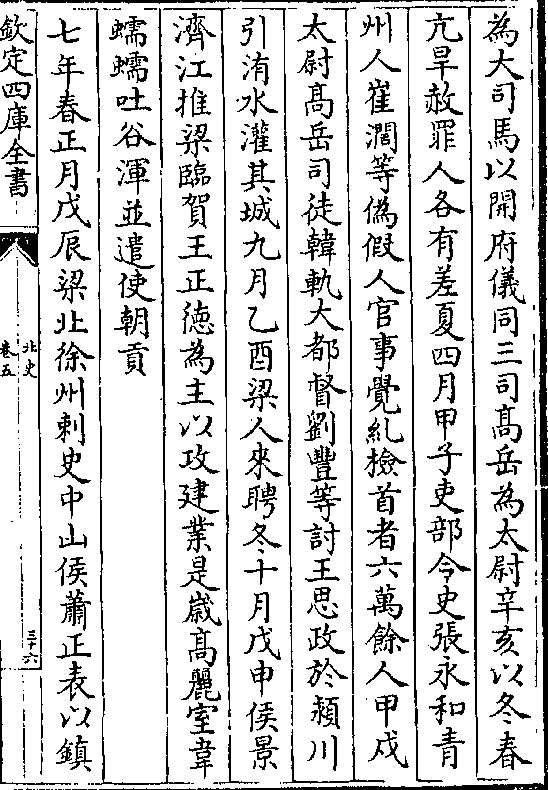 為大司馬以開府儀同三司髙岳為太尉辛亥以冬春
亢旱赦罪人各有差夏四月甲子吏部令史張永和青
州人崔濶等偽假人官事覺糺檢首者六萬餘人甲戌
太尉髙岳司徒韓軌大都督劉豐等討王思政於潁川
引洧水灌其城九月乙酉梁人來聘冬十月戊申侯景
濟江推梁臨賀王正徳為主以攻建業是歳髙麗室韋
蠕蠕吐谷渾並遣使朝貢
七年春正月戊辰梁北徐州刺史中山侯蕭正表以鎮
欽定四庫全書
北史
卷五
三十六